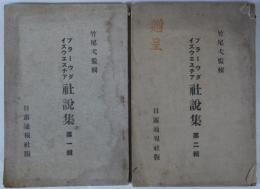 竹尾弌監輯
プラーウダ
イズウエスチア
社說集
第一輯
日露通報社版
贈呈
竹尾弌監輯
プラーウダ
イズウエスチア
社說集
第二輯
日露通報社版